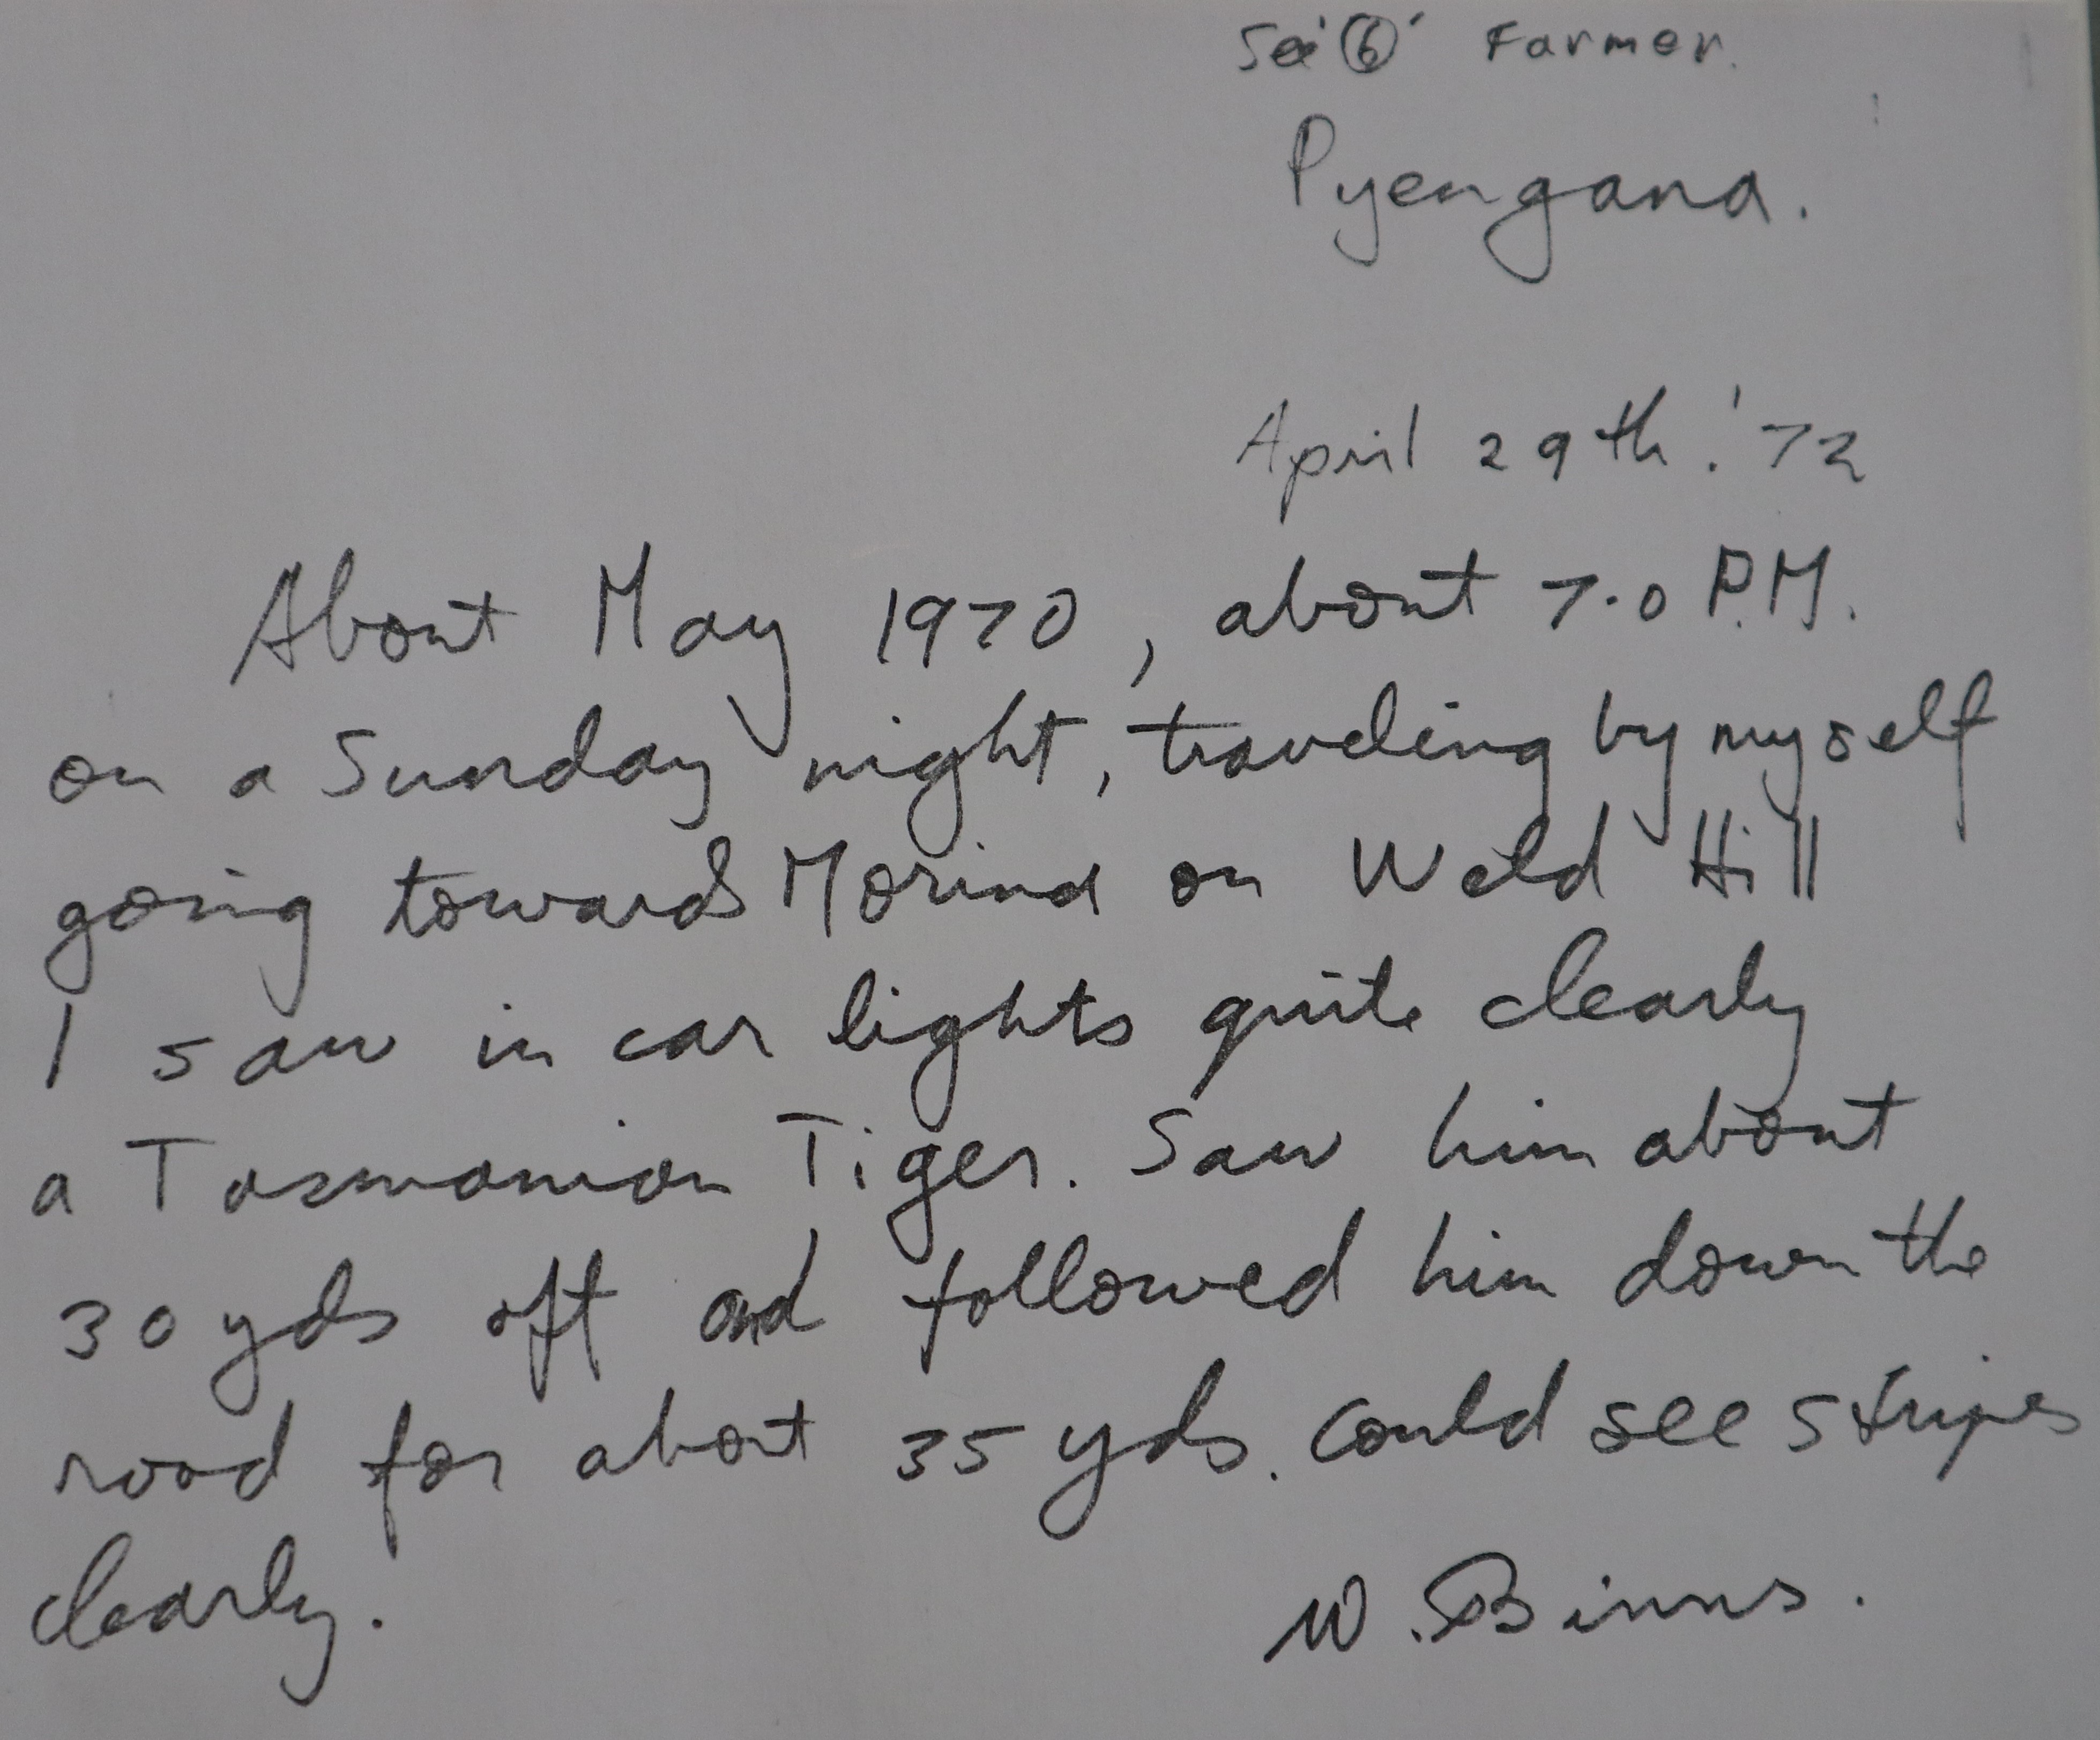 See '⑥' Farmer.
Pyengana.
April 29th. '72
About May 1970, about 7.0 P.M.
on a Sunday night, traveling by myself
going towards Morina on Weld Hill
I saw in car lights quite clearly
a Tasmanian Tiger. Saw him about
30 yds off and followed him down the
road for about 35 yds. Could see stripes
clearly.
W. Binns.